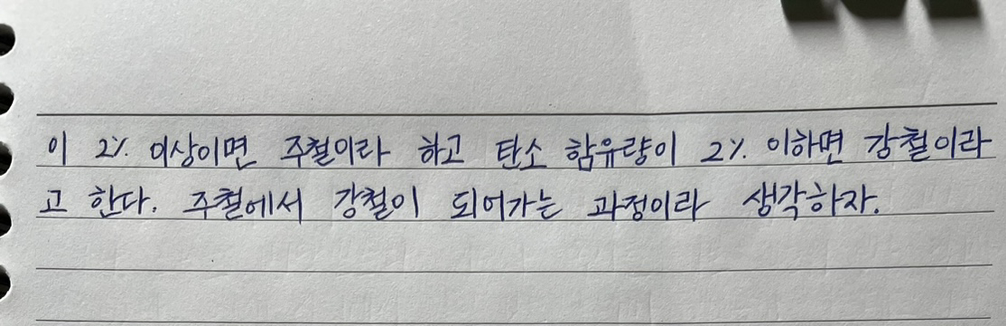 이 2%. 이상이면 주철이라 하고 탄소 함유량이 2%. 이하면 강철이라
고 한다. 주철에서 강철이 되어가는 과정이라 생각하자.